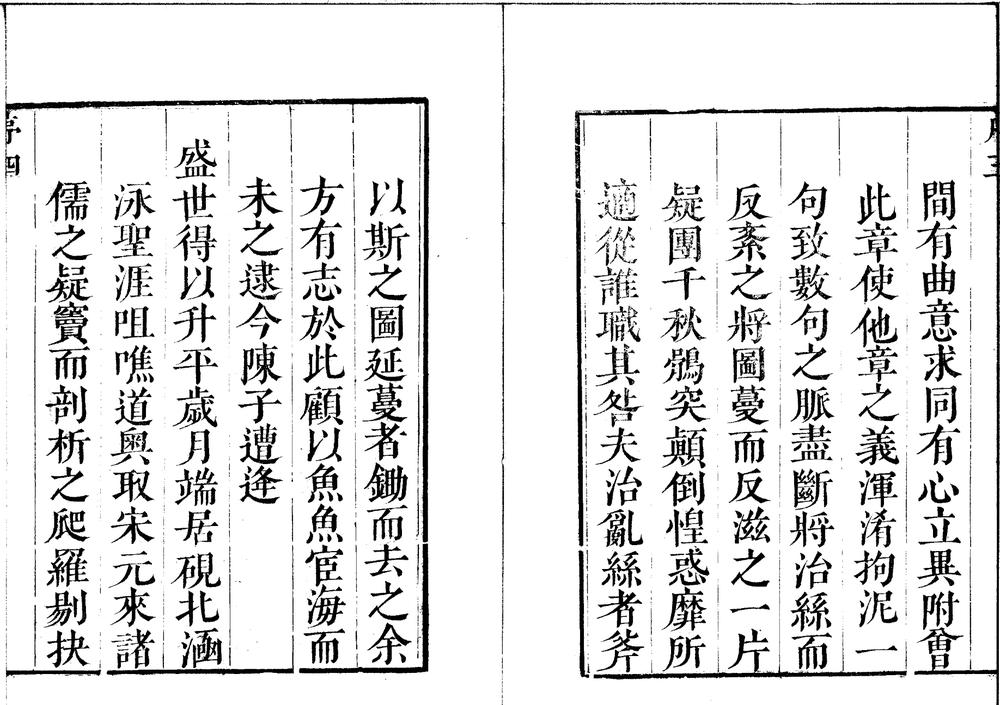 間有曲意求同有心立異附會
此章使他章之義渾淆拘泥一
句致數句之脈盡斷將治絲而
反紊之將圖蔓而反滋之一片
疑團千秋鶻突顛倒惶惑靡所
適從誰職其咎夫治亂絲者斧
以斯之圖延蔓者鋤而去之余
方有志於此顧以魚魚宦海而
未之逮今陳子遭逢
盛世得以升平歲月端居硯北涵
泳聖涯咀噍道奧取宋元來諸
儒之疑竇而剖析之爬羅剔抉
序四